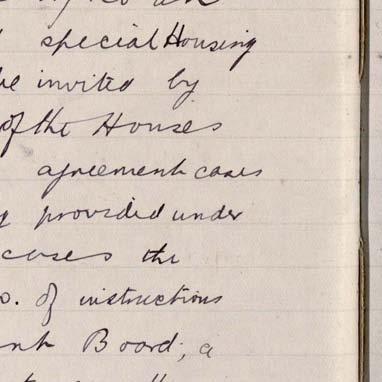 special Housing
be invited by
of the Houses
agreement cases
provided under
cases the
o. of instructions
Board, a